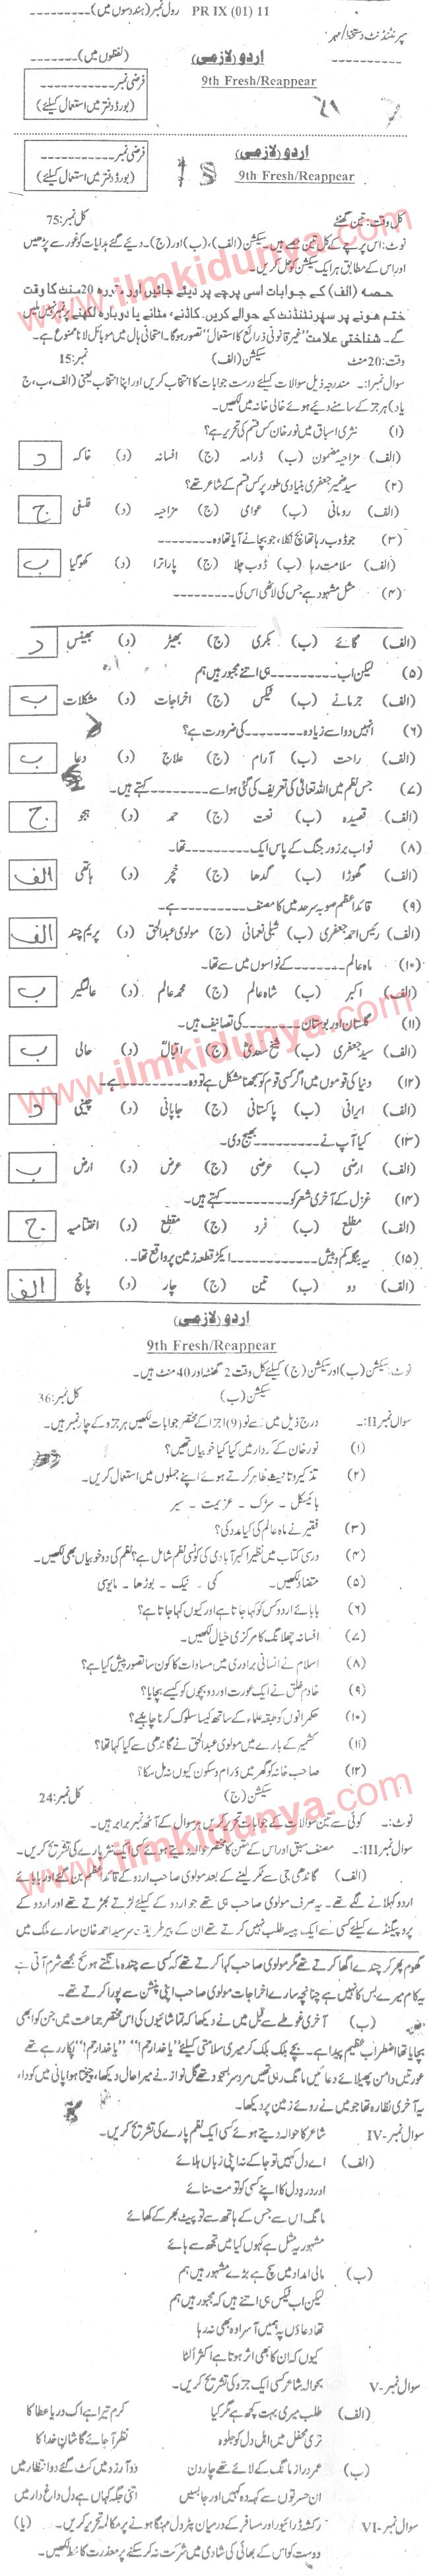 PR IX (01) 11 رول نمبر (ہندسوں میں)
سپرنٹنڈنٹ دستخط/مہر
(لفظوں میں)
اردو (لازمی)
9th Fresh/Reappear
فرضی نمبر
(بورڈ دفتر میں استعمال کیلئے)
اردو (لازمی)
9th Fresh/Reappear
فرضی نمبر
(بورڈ دفتر میں استعمال کیلئے)
کل وقت: تین گھنٹے کل نمبر: 75
نوٹ: اس پرچے کے کل تین حصے ہیں۔ سیکشن (الف)، (ب) اور (ج)۔ دیئے گئے ہدایات کو غور سے پڑھیں
اور اس کے مطابق ہر ایک سیکشن کو حل کریں۔
حصہ (الف) کے جوابات اسی پرچے پر دیئے جائیں اور مقررہ 20 منٹ کا وقت
ختم ہونے پر سپرنٹنڈنٹ کے حوالے کریں۔ کاٹنے، مٹانے یا دوبارہ لکھنے پر نمبر نہیں ملیں
گے۔ شناختی علامت "غیر قانونی ذرائع کا استعمال" تصور ہوگا۔ امتحانی ہال میں موبائل لانا ممنوع ہے۔
وقت: 20 منٹ سیکشن (الف) نمبر: 15
سوال نمبر I:۔ مندرجہ ذیل سوالات کیلئے درست جوابات کا انتخاب کریں اور اپنا انتخاب یعنی (الف، ب، ج
یا د) ہر جز کے سامنے دیئے ہوئے خالی خانہ میں لکھیں۔
(۱) نثری اسباق میں نور خان کس قسم کی تحریر ہے؟
(الف) مزاحیہ مضمون (ب) ڈرامہ (ج) افسانہ (د) خاکہ د
(۲) سید ضمیر جعفری بنیادی طور پر کس قسم کے شاعر تھے؟
(الف) رومانی (ب) عوامی (ج) مزاحیہ (د) فلسفی ج
(۳) جو ڈوب رہا تھا بچ نکلا، جو بچانے آیا تھا وہ
(الف) سلامت رہا (ب) ڈوب چلا (ج) پار اترا (د) کھو گیا ب
(۴) مثل مشہور ہے جس کی لاٹھی اس کی
(الف) گائے (ب) بکری (ج) بھیڑ (د) بھینس د
(۵) لیکن اب ہی اتنے ہیں مجبور ہیں ہم
(الف) جرمانے (ب) ٹیکس (ج) اخراجات (د) مشکلات ب
(۶) انہیں دوا سے زیادہ کی ضرورت ہے؟
(الف) راحت (ب) آرام (ج) علاج (د) دعا ب
(۷) جس نظم میں اللہ تعالیٰ کی تعریف کی گئی ہو اسے کہتے ہیں۔
(الف) قصیدہ (ب) نعت (ج) حمد (د) ہجو ج
(۸) نواب برزور جنگ کے پاس ایک تھا۔
(الف) گھوڑا (ب) گدھا (ج) خچر (د) ہاتھی الف
(۹) قائداعظم صوبہ سرحد میں کا مصنف ہے۔
(الف) رئیس احمد جعفری (ب) شبلی نعمانی (ج) مولوی عبدالحق (د) پریم چند الف
(۱۰) ماہ عالم کے نواسوں میں سے تھا۔
(الف) اکبر (ب) شاہ عالم (ج) محمد عالم (د) عالمگیر ب
(۱۱) گلستان اور بوستان کی تصانیف ہیں۔
(الف) سید جعفری (ب) شیخ سعدیؒ (ج) اقبالؒ (د) حالی ب
(۱۲) دنیا کی قوموں میں اگر کسی قوم کو سمجھنا مشکل ہے تو وہ ہے۔
(الف) ایرانی (ب) پاکستانی (ج) جاپانی (د) چینی د
(۱۳) کیا آپ نے بھیج دی۔
(الف) ارضی (ب) عرضی (ج) عرض (د) ارض ب
(۱۴) غزل کے آخری شعر کو کہتے ہیں۔
(الف) مطلع (ب) فرد (ج) مقطع (د) اختتامیہ ج
(۱۵) یہ بنگلہ کم و بیش ایکڑ قطعہ زمین پر واقع تھا۔
(الف) دو (ب) تین (ج) چار (د) پانچ الف
اردو (لازمی)
9th Fresh/Reappear
نوٹ: سیکشن (ب) اور سیکشن (ج) کیلئے کل وقت 2 گھنٹہ اور 40 منٹ ہیں۔
سیکشن (ب) کل نمبر: 36
سوال نمبر II:۔ درج ذیل میں سے نو (9) اجزا کے مختصر جوابات لکھیں ہر جزو کے چار نمبر ہیں۔
(۱) نور خان کے کردار میں کیا کیا خوبیاں تھیں؟
(۲) تذکیر و تانیث ظاہر کرتے ہوئے اپنے جملوں میں استعمال کریں۔
بائیسکل ۔ سڑک ۔ عزیمت ۔ سیر
(۳) فقیر نے ماہ عالم کی کیا مدد کی؟
(۴) درسی کتاب میں نظیر اکبر آبادی کی کونسی نظم شامل ہے؟ نظم کی دو خوبیاں بھی لکھیں۔
(۵) متضاد لکھیں۔ کمی ۔ نیک ۔ بوڑھا ۔ مایوسی
(۶) بابائے اردو کس کو کہا جاتا ہے اور کیوں کہا جاتا ہے؟
(۷) افسانہ چھلانگ کا مرکزی خیال لکھیں۔
(۸) اسلام نے انسانی برادری میں مساوات کا کون سا تصور پیش کیا ہے؟
(۹) خادم خلق نے ایک عورت اور دو بچوں کو کیسے بچایا؟
(۱۰) حکمرانوں کو طبقہ علماء کے ساتھ کیسا سلوک کرنا چاہیے؟
(۱۱) کشمیر کے بارے میں مولوی عبدالحق نے گاندھی سے کیا کہا تھا؟
(۱۲) صاحب خانہ کو گھر میں آرام و سکون کیوں نہ مل سکا؟
سیکشن (ج) کل نمبر: 24
نوٹ:۔ کوئی سے تین سوالات کے جوابات تحریر کریں ہر سوال کے آٹھ نمبر ہیں۔
سوال نمبر III:۔ مصنف، سبق اور اس کے متن کا مختصر حوالہ دیتے ہوئے کسی ایک نثر پارے کی تشریح کریں۔
(الف) گاندھی جی سے ٹکر لینے کے بعد مولوی صاحب اردو کے قائداعظم بن گئے اور بابائے
اردو کہلانے لگے تھے۔ یہ صرف مولوی صاحب ہی تھے جو اردو کے کیلئے لڑتے بھڑتے تھے اور اردو کے
پروپیگنڈے کیلئے کسی سے ایک پیسہ طلب نہیں کرتے تھے ان کے پیر طریقت سر سید احمد خان سارے ملک میں
گھوم پھر کر چندے اکٹھا کرتے تھے مگر مولوی صاحب کہا کرتے تھے کہ کسی سے چندہ مانگتے ہوئے مجھے شرم آتی ہے
یہ کام میرے بس کا نہیں ہے چنانچہ سارے اخراجات مولوی صاحب اپنی پنشن سے پورا کرتے تھے۔
(ب) آخری غوطے سے قبل میں نے دیکھا کہ تماشائیوں کی اس مختصر جماعت میں جن کو ابھی
بچایا تھا اضطراب عظیم پیدا ہے۔ بچے بلک بلک کر میری سلامتی کیلئے "یا خدا رحم"! "یا خدا رحم"! پکار رہے تھے
عورتیں دامن پھیلائے دعائیں مانگ رہی تھیں مرد سر بسجود تھے گل نواز نے میرا حال دیکھا، چیختا ہوا پانی میں کودا،
یہ آخری نظارہ تھا جو میں نے روئے زمین پر دیکھا۔
سوال نمبر IV۔ شاعر کا حوالہ دیتے ہوئے کسی ایک نظم پارے کی تشریح کریں۔
(الف) اے دل کہیں تو جا کے نہ اپنی زباں ہلائے
اور درد دل کا اپنے کسی کو تو مت سنائے
مانگ اس سے جس کے ہاتھ سے تو پیٹ بھر کے کھائے
مشہور یہ مثل ہے کہوں کیا میں تجھ سے ہائے
(ب) مالی امداد میں سچ ہے بڑے مشہور ہیں ہم
لیکن اب ٹیکس ہی اتنے ہیں کہ مجبور ہیں ہم
تھا دعاؤں پہ ہمیں آسرا وہ بھی نہ رہا
کیوں کہ ان کا بھی اثر ہوتا ہے اکثر الٹا
سوال نمبر V۔ بحوالہ شاعر کسی ایک جزو کی تشریح کریں۔
(الف) طلب میری بہت کچھ ہے مگر کیا کرم تیرا ہے اک دریا عطا کا
تری محفل میں اہل دل کو جلوہ نظر آ جائے گا شانِ خدا کا
(ب) عمر دراز مانگ کے لائے تھے چار دن دو آرزو میں کٹ گئے دو انتظار میں
ان حسرتوں سے کہہ دو کہیں اور جا بسیں اتنی جگہ کہاں ہے دل داغ دار میں
سوال نمبر VI۔ رکشہ ڈرائیور اور مسافر کے درمیان پٹرول مہنگا ہونے پر مکالمہ تحریر کریں۔ (یا)
دوست کو اس کے بھائی کی شادی میں شرکت نہ کر سکنے پر معذرت کا خط لکھیں۔
www.ilmkidunya.com
www.ilmkidunya.com
www.ilmkidunya.com